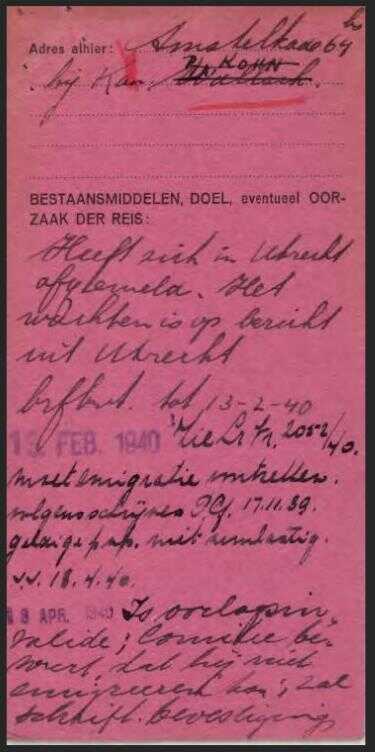 Adres alhier: Amstelkade 64 hs
P/a KOHN
bij Kan. Wallach.
BESTAANSMIDDELEN, DOEL, eventueel OOR-
ZAAK DER REIS:
Heeft zich in Utrecht
afgemeld. Het
wachten is op bericht
uit Utrecht
tot 13-2-40
13 FEB. 1940 Zie Lr. Nr. 2052/40.
moet emigratie
volgens schrijven 17.11.39.
niet
v.v. 18.4.40.
18 APR. 1940 Is oorlogsin
valide; Comitee be-
weert, dat hij niet
emigreren kan; zal
schrift. bevestiging